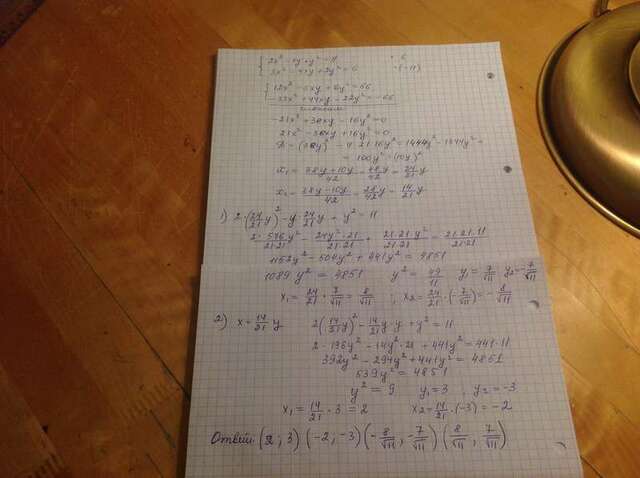 { 2x² - xy + y² = 11 | · 6
{ 3x² - 4xy + 2y² = 6 | ·(-11)
{ 12x² - 6xy + 6y² = 66
{ -33x² + 44xy - 22y² = -66
-21x² + 38xy - 16y² = 0
21x² - 38xy + 16y² = 0
D = (38y)² - 4·21·16y² = 1444y² - 1344y² =
= 100y² = (10y)²
x₁ = (38y + 10y)/42 = 48y/42 = 24/21 y
x₂ = (38y - 10y)/42 = 28y/42 = 14/21 y
1) 2·(24/21 y)² - y·24/21 y + y² = 11
2·576y²/21·21 - 24y²·21/21·21 + 21·21·y²/21·21 = 21·21·11/21·21
1152y² - 504y² + 441y² = 4851
1089y² = 4851 y² = 49/11 y₁ = 7/√11 y₂ = -7/√11
x₁ = 24/21 · 7/√11 = 8/√11 ; x₂ = 24/21 · (-7/√11) = -8/√11
2) x = 14/21 y 2(14/21 y)² - 14/21 y·y + y² = 11
2·196y² - 14y²·21 + 441y² = 441·11
392y² - 294y² + 441y² = 4851
539y² = 4851
y² = 9 y₁ = 3 y₂ = -3
x₁ = 14/21 · 3 = 2 x₂ = 14/21 · (-3) = -2
Ответ (2; 3) (-2, -3) (-8/√11, -7/√11) (8/√11, 7/√11)